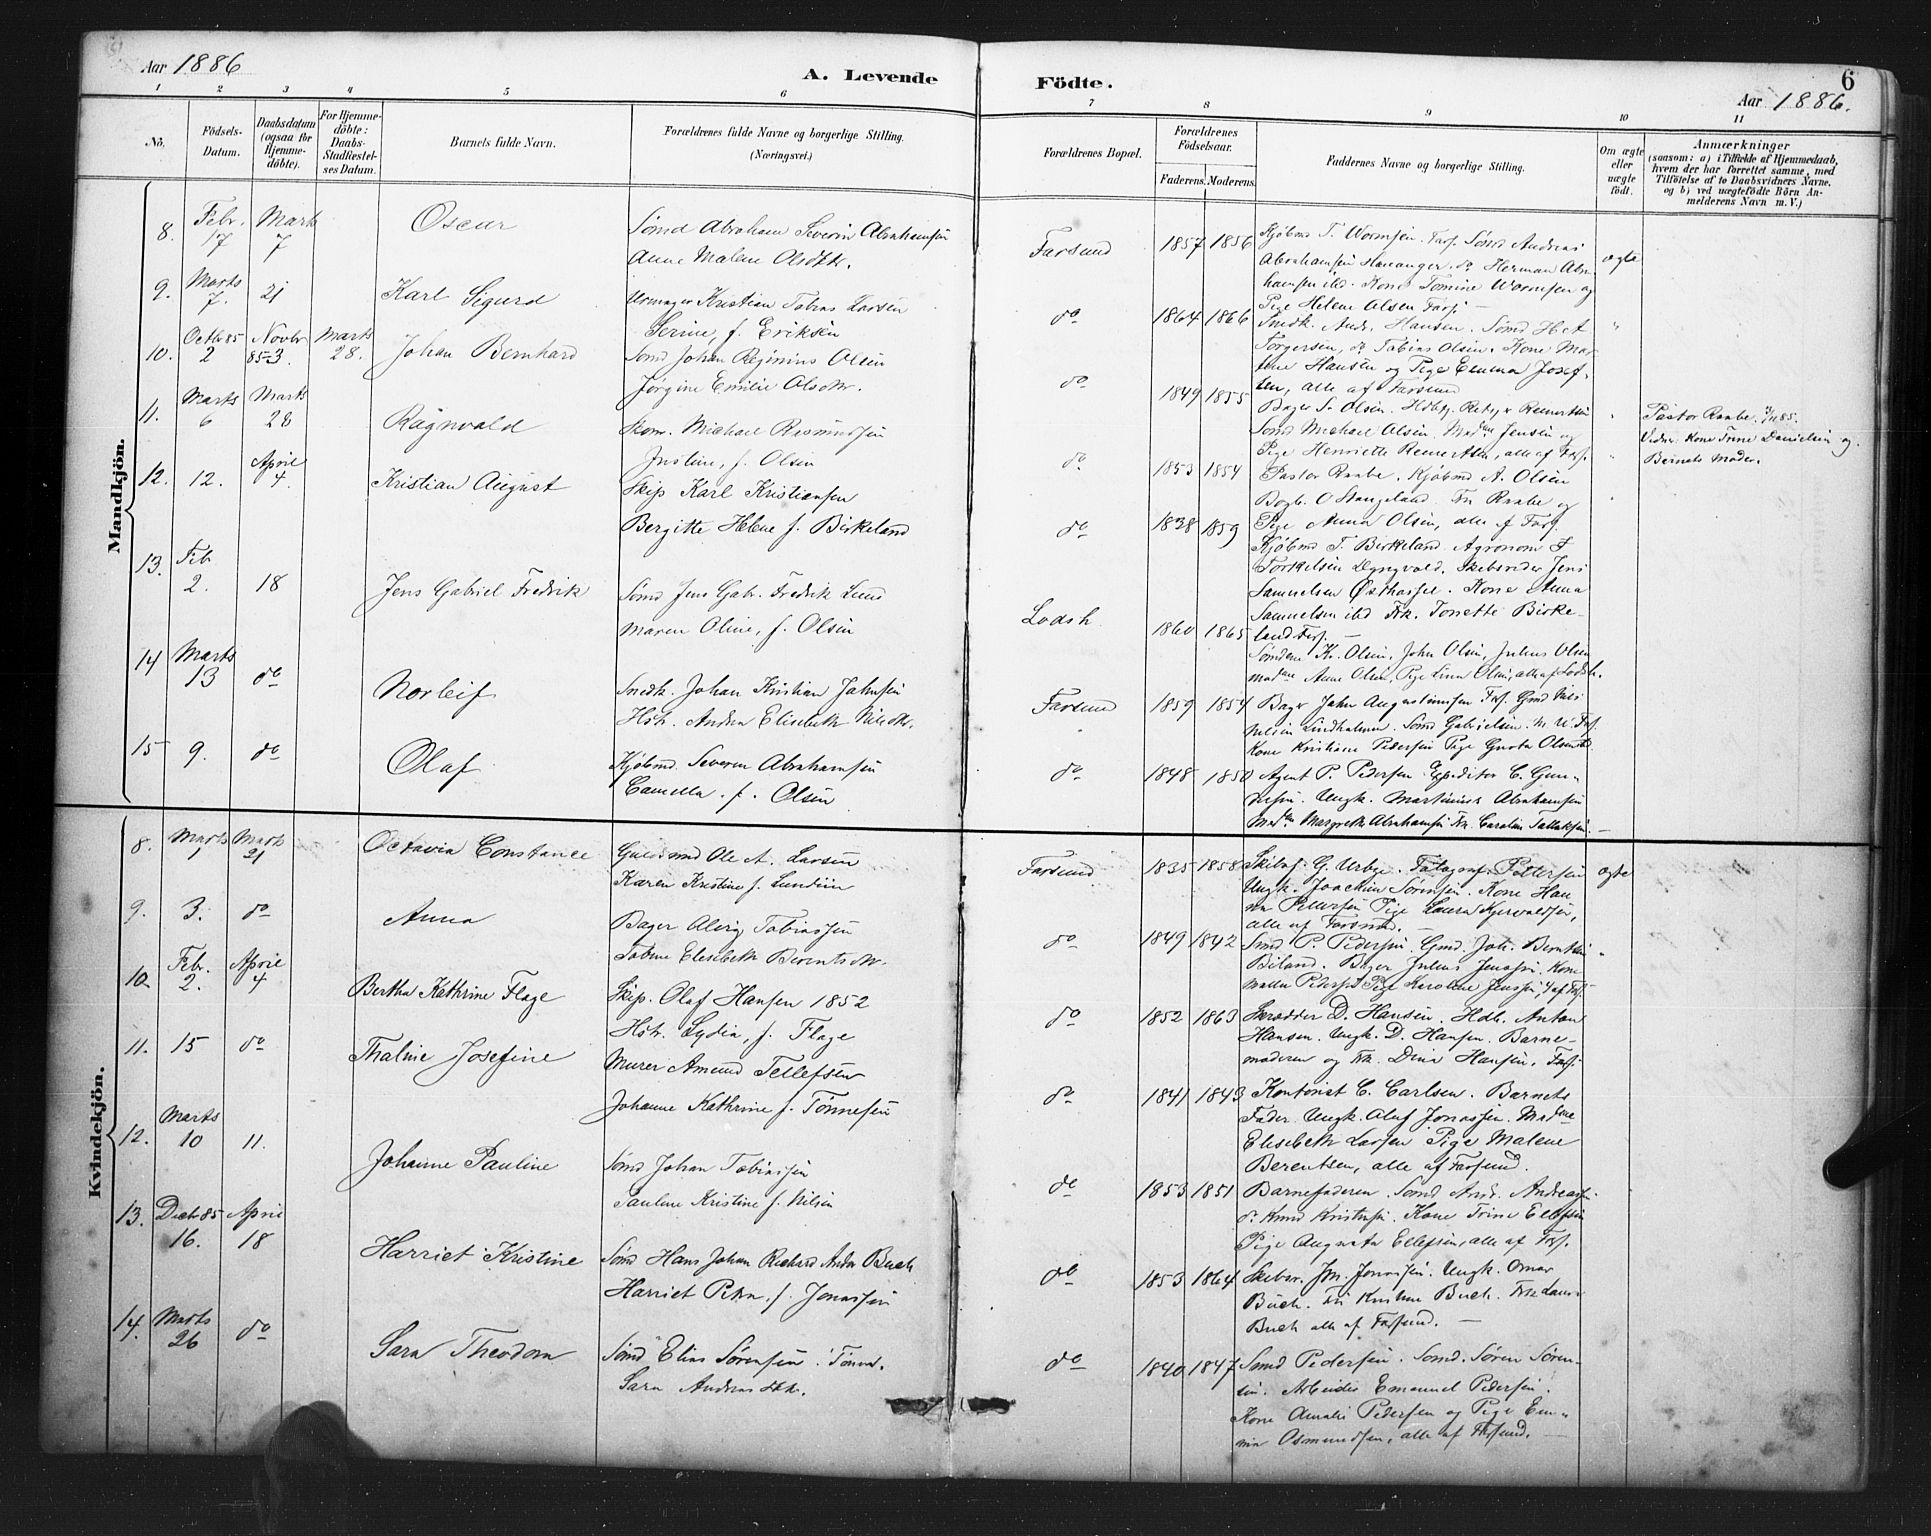 Aar 1886
A. Levende
Födte.
6
Aar 1886.
1 2 3 4 5 6 7 8 9 10 11
No.
Födsels-
Datum.
Daabsdatum
(ogsaa for
Hjemme-
döbte).
For Hjemme-
döbte:
Daabs-
Stadfæstel-
ses Datum.
Barnets fulde Navn.
Forældrenes fulde Navne og borgerlige Stilling.
(Næringsvei.)
Forældrenes Bopæl.
Forældrenes
Födselsaar.
Faderens. Moderens.
Faddernes Navne og borgerlige Stilling.
Om ægte
eller
uægte
födt.
Anmærkninger
(saasom: a) i Tilfælde af Hjemmedaab,
hvem der har forrettet samme, med
Tilföielse af to Daabsvidners Navne,
og b) ved uægtefödte Börn An-
melderens Navn m. V.)
Mandkjön.
8. Febr. 17 Marts 7 Oscar
Sømd Abraham Severin Abrahamsen
Anne Malene Olsdtr.
Farsund 1857 1856
Kjøbmd T. Wormsen. Fars. Sømd Andreas
Abrahamsen Hananger. do Herman Abra-
hamsen ibd. Kone Tomine Wormsen og
Pige Helene Olsen Fars.
ægte
9. Marts 7. 21 Karl Sigurd
Urmager Kristian Tobias Larsen
Serine, f. Eriksen
do 1864 1866
Snedk. Andr. Hansen. Sømd H. A
Torgersen, do Tobias Olsen. Kone Mar-
Hansen og Pige Emma Josef-
sen, alle af Farsund
10. Octbr 85 2 Novbr 85 3. Marts 28. Johan Bernhard
Sømd Johan Reginius Olsen
Jørgine Emilie Olsdtr.
do 1849 1855
Bager S. Olsen.
Sømd Michael Olsen. Mad. Jensen og
Pige Henriette Reinertsen, alle af Fars.
Pastor Raabe 3/11 85.
Vidner Kone Trine Danielsen og
Bernets Moder.
11. Marts 6 Marts 28 Ragnvald
Skom. Michael Rasmussen
Justine, f. Olsen
do 1853 1854
Pastor Raabe. Kjøbmd A. Olsen
Bogb. O Stangeland. Fr. Raabe og
Pige Anna Olsen, alle af Fars.
12. 12. April 4. Kristian August
Skip. Karl Kristiansen
Bergitte Helene f. Birkeland
do 1838 1859
Kjøbmd T. Birkeland. Agronom F
Torkelsen Dyngvold. Skibsreder Jens
Samuelsen Østhassel. Kone Anna
Samuelsen ibd Frk. Tonette Birke-
land Fars.
13. Feb. 2. 18 Jens Gabriel Fredrik
Sømd Jens Gabr. Fredrik Lund
Maren Oline, f. Olsen
Lodsh. 1860 1865
Sømdene Kr. Olsen, John Olsen, Julius Olsen
Anne Olsen, Pige Lina Olsen, alle af Lodsh.
14 Marts 13 do Norleif
Snedk. Johan Kristian Jahnsen
Hstr. Andrea Elisabeth Nilsdtr.
Farsund 1859 1854
Bagr John Augustinussen Fars. Gmd Nils
Nilsen Lindholmen. Sømd Gabrielsen.
Kone Kristiane Pedersen Pige Gusta Olsen
15 9. do Olaf
Kjøbmd. Severin Abrahamsen
Camilla f. Olsen
do 1848 1850
Agent P. Pedersen. Expeditør C. Gun-
Ungk. Martinius Abrahamsen
Margrethe Abrahamsen Frk. Caroline Salluksen.
Kvindekjön.
8. Marts 1 Marts 21 Octavia Constance
Guldsmd Ole A. Larsen
Karen Kristine f. Lundiin
Farsund 1835 1858
Skibsf. G. Urbye. Fotograf. Pettersen
Ungk. Joachim Sørensen. Kone Han-
na Petersen Pige Laura Kjervaldsen,
alle af Farsund.
ægte
9. 3. do Anna
Bager Alerg Tobiassen
Tobine Elisabeth Berentsdtr.
do 1849 1842
Sømd P. Pedersen. Gmd. Joh. Berntsen
Biland. Bager Julius Jenssen. Kone
Malla Pedersen Pige Karoline Jenssen, 4 af Fars.
10. Febr. 2. April 4 Bertha Kathrine Flage
Skip. Olaf Hansen 1852
Hstr. Lydia, f. Flage
do 1852 1863
Skrædder D. Hansen. Hdb. Anton
Hansen. Ungk. D. Hansen. Barne-
moderen og Frk. Dina Hansen. Fars.
11. 15 do Thaline Josefine
Murer Amund Tellefsen
Johanne Kathrine f. Tønnesen
do 1841 1843
Kontorist C. Carlsen. Barnets
Fader. Ungk. Oluf Jonassen. Madme
Elisabeth Larsen Pige Malene
Berentsen, alle af Farsund.
12. Marts 10 11. Johanne Pauline
Sømd Johan Tobiassen
Pauline Kristine f. Nilsen
do 1853 1851
Barnefaderen. Sømd Andr. Andreassen
do Knud Kristensen. Kone Trine Ellefsen
Pige Augusta Ellefsen, alle af Fars.
13. Decbr 85 16. April 18 Harriet Kristine
Sømd Hans Johan Richard Andr Buch
Harriet Petra, f. Jonassen
do 1853 1864
Skibsr. Jon. Jonassen. Ungk. Omar
Buch. Fr. Kristine Buch. Frk. Laura
Buch alle af Farsund.
14. Marts 26 do Sara Theodora
Sømd Elias Sørensen
Sara Andreasdtr.
do 1840 1847
Sømd Pedersen. Sømd. Søren Søren-
sen. Arbeider Emanuel Pedersen.
Kone Amalie Pedersen og Pige Em-
ma Osmundsen, alle af Farsund.